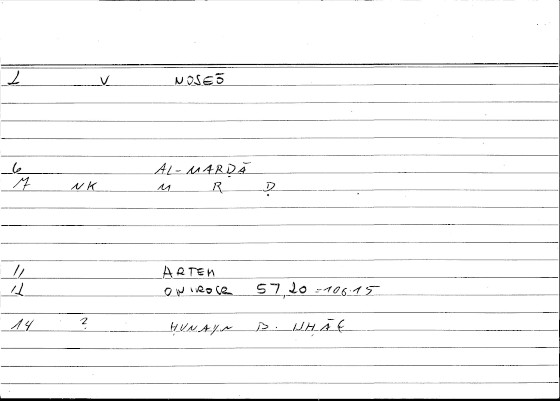 1 V NOSEŌ
6 AL-MARḌĀ
7 NK M R Ḍ
11 ARTEM
12 ONIROCR 57,20 = 106.15
14 ? ḤUNAYN B. ISḤĀḲ